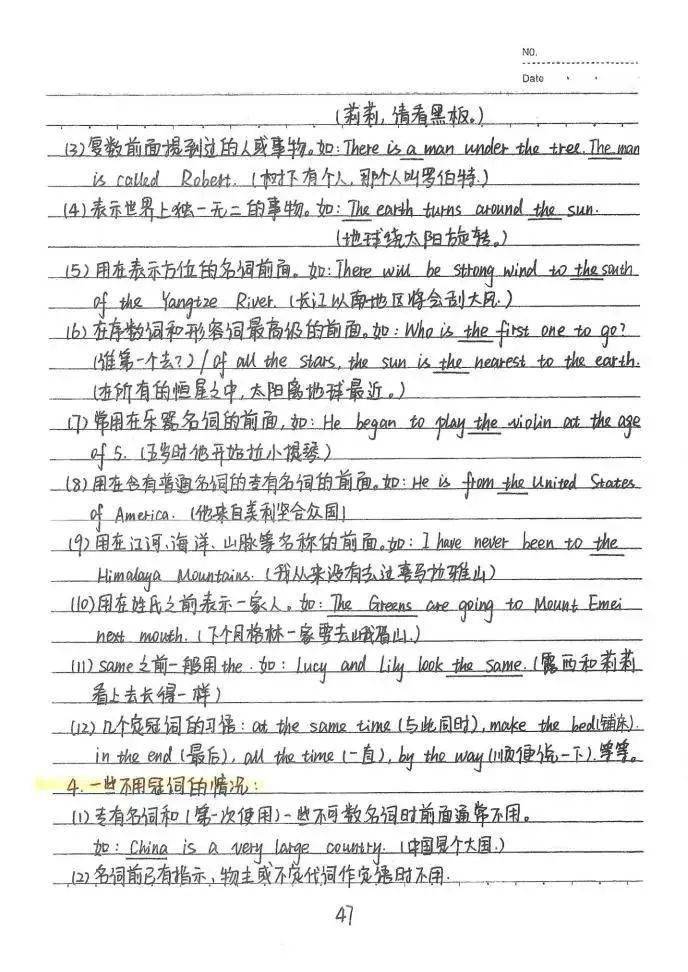 NO.
Date
(莉莉,请看黑板。)
(3)复数前面提到过的人或事物。如:There is a man under the tree. The man
is called Robert. (树下有个人,那个人叫罗伯特.)
(4)表示世界上独一无二的事物。如:The earth turns around the sun.
(地球绕太阳旋转。)
(5)用在表示方位的名词前面。如:There will be strong wind to the south
of the Yangtze River. (长江以南地区将会刮大风.)
(6)在序数词和形容词最高级的前面。如:Who is the first one to go?
(谁第一个去?)/ Of all the stars, the sun is the nearest to the earth.
(在所有的恒星之中,太阳离地球最近。)
(7)常用在乐器名词的前面,如:He began to play the violin at the age
of 5. (5岁时他开始拉小提琴)
(8)用在含有普通名词的专有名词的前面。如:He is from the United States
of America. (他来自美利坚合众国)
(9)用在江河、海洋、山脉等名称的前面。如:I have never been to the
Himalaya Mountains. (我从来没有去过喜马拉雅山)
(10)用在姓氏之前表示一家人。如:The Greens are going to Mount Emei
next mouth. (下个月格林一家要去峨眉山.)
(11) same之前一般用the. 如:Lucy and Lily look the same. (露西和莉莉
看上去长得一样)
(12)几个定冠词的习语:at the same time (与此同时), make the bed(铺床).
in the end (最后), all the time (一直), by the way (顺便说一下).等等。
4.一些不用冠词的情况:
(1)专有名词和(第一次使用)一些不可数名词时前面通常不用。
如:China is a very large country. (中国是个大国.)
(2)名词前已有指示、物主或不定代词作定语时不用.
47